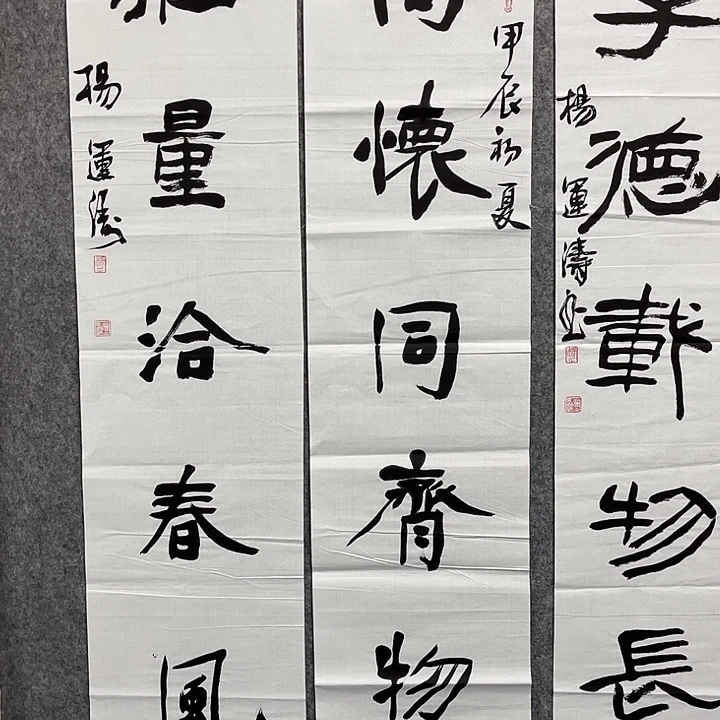 德載物長
楊運濤書
甲辰初夏
懷同齊物
量洽春風
楊運濤